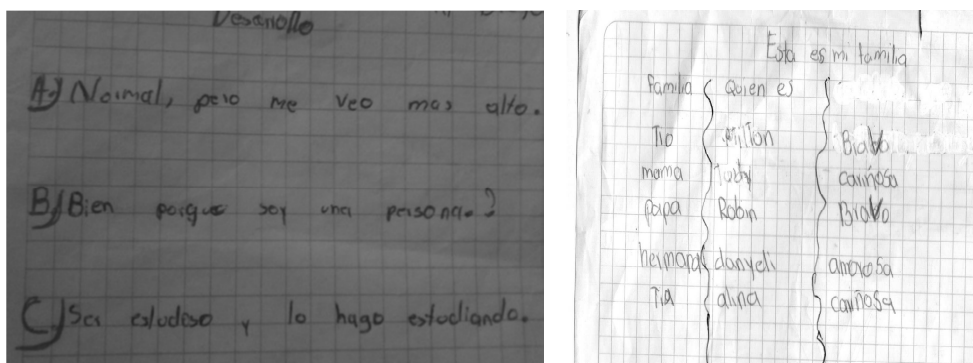 Desarrollo
A.) Normal, pero me veo mas alto.
B.) Bien porque soy una persona.?
C.) Ser estudoso y lo hago estudiando.
Esta es mi familia
Familia Quien es
Tio Bravo
mama cariñosa
papa Robin Bravo
hermana danyeli amorosa
Tia alina cariñosa